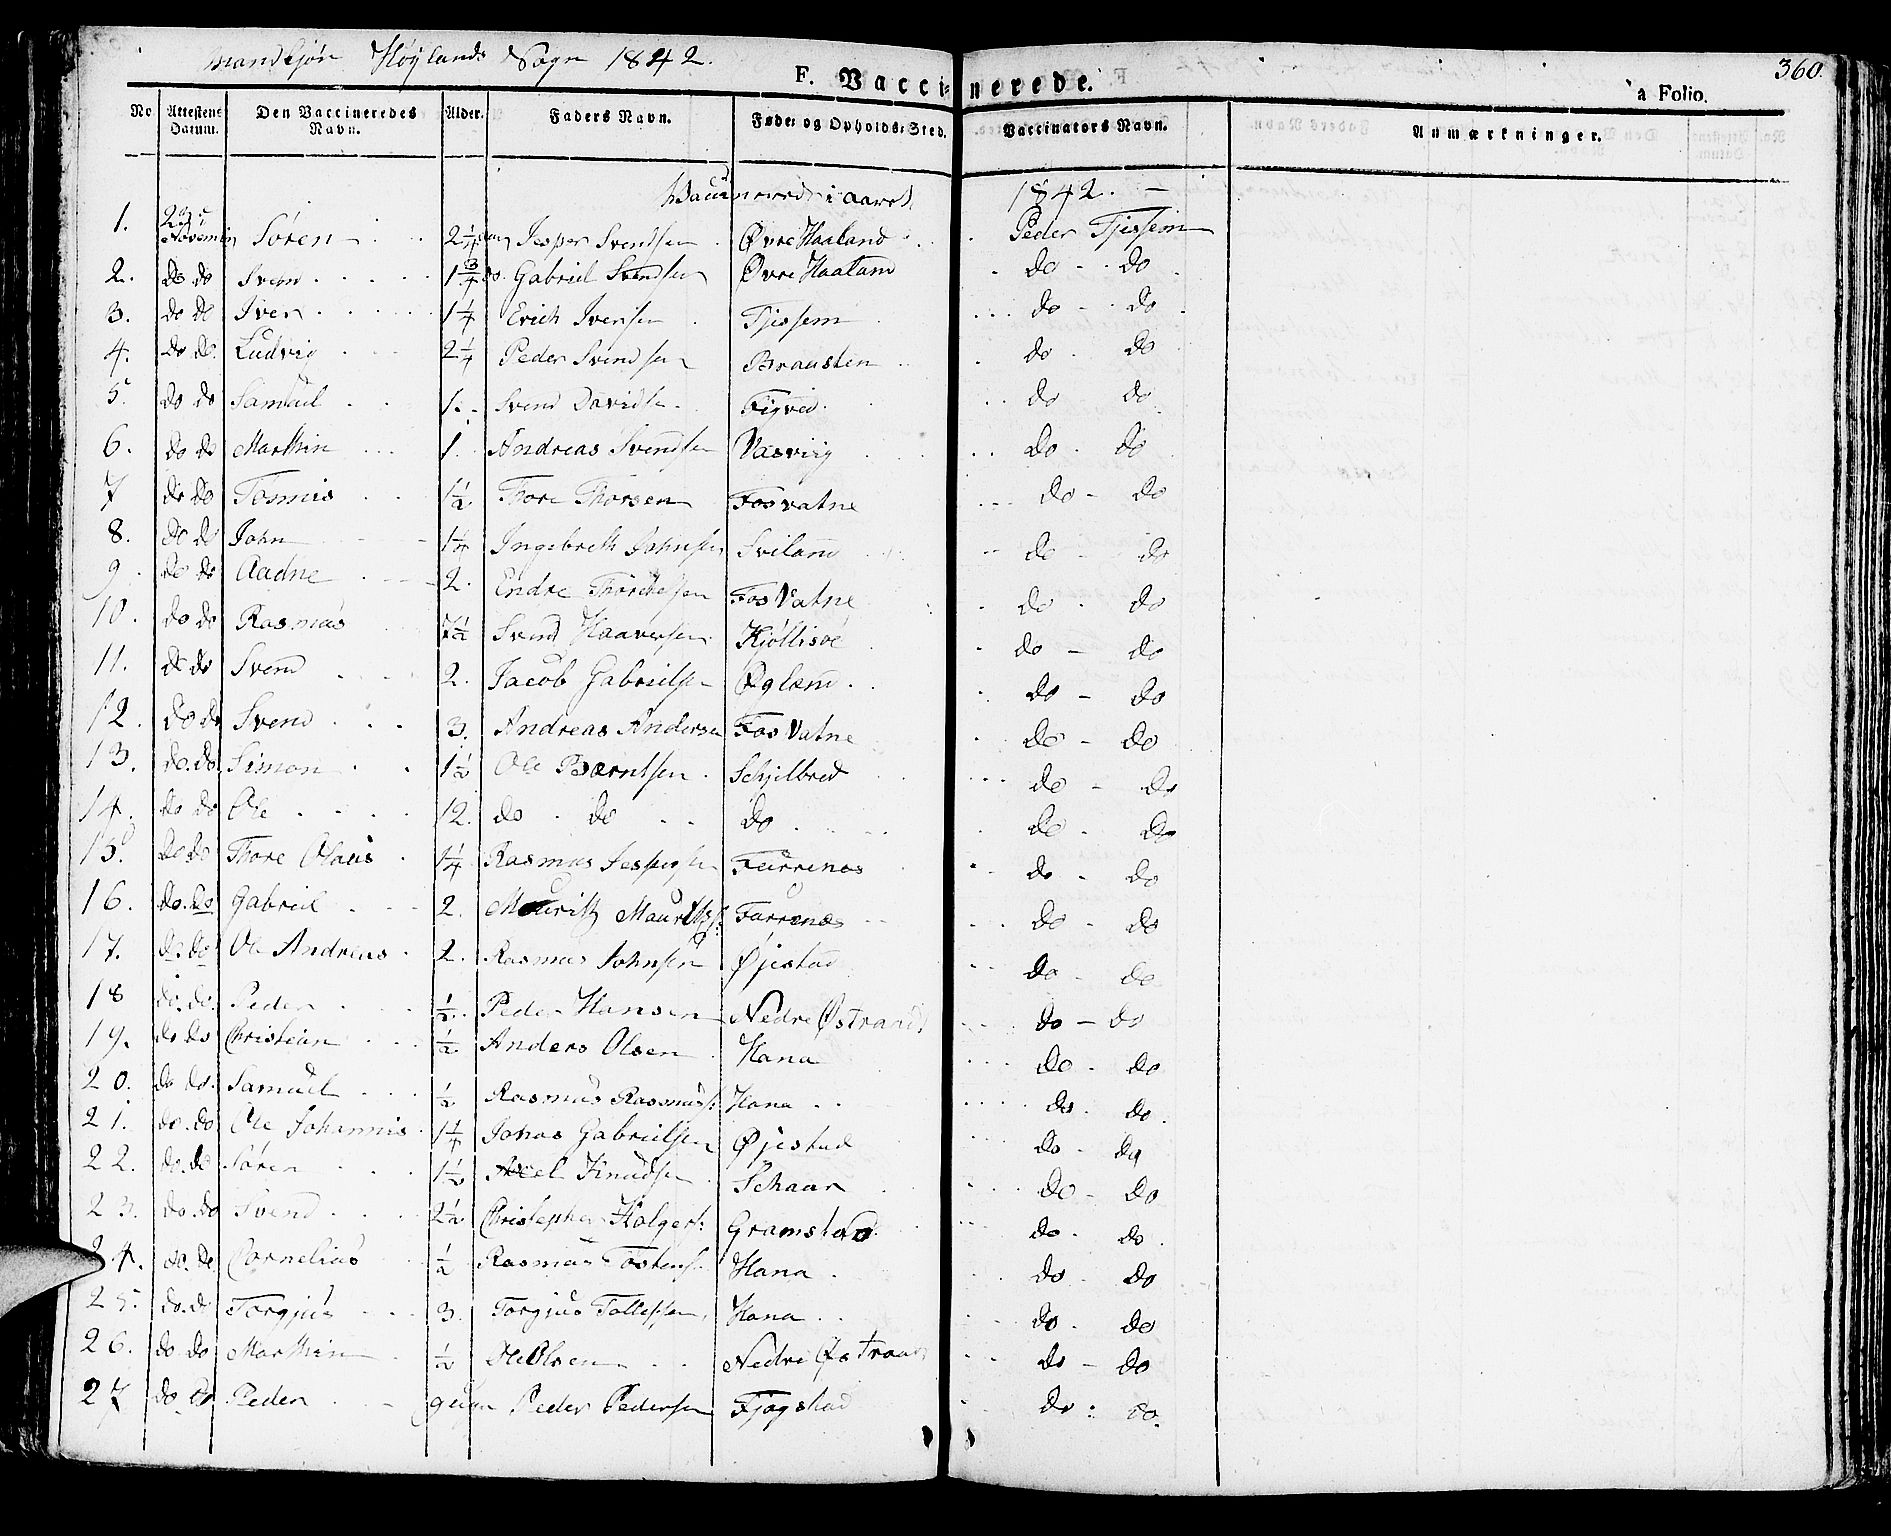 Mandkjøn Høylands Sogn 1842.
360.
F. Vaccinerede.
a Folio.
No Attestens Datum. Den Vaccineredes Navn. Alder. Faders Navn. Føde- og Opholds-Sted. Vaccinators Navn. Anmærkninger.
Vaccinerede i Aaret 1842. —
1. Novembr Søren 2 1/4 Jesper Svendsen Øvre Haaland Peder Tjessem
2. do do Svend 1 3/4 do. Gabriel Svendsen Øvre Haaland do - do
3. do do Iver 1 1/4 Erich Iversen Tjessem do - do
4. do do. Ludvig 2 1/4 Peder Svendsen Braasten do. do
5. do do Samuel 1. Svend Davidse Figved do do
6. do do Marthin 1. Andreas Svendsen Vasviig do. do
7 do do Tønnis 1 1/2 Thore Thorsen Fosvatne do - do
8. do do John 1 1/4 Ingebreth Johnsen Sviland do - do
9. do do Aadne 2. Endre Fos Vatne do. do
10. do do Rasmus 7 1/2 Svend Haaversen Kjøllisøe do - do
11. do do Svend 2. Jacob Gabrielsen Øgland. do - do
12. do do Svend 3. Andreas Andersen Fos Vatne do - do
13. do. do. Simon 1 1/2 Ole Bærntsen Schjelbred do - do
14. do do Ole 12. do do do do - do
15. do do Thore Olaus 1 1/4 Rasmus Jespersen Furrenes do - do
16. do. do Gabriel 2. Mouritz Mauritzs: Furrenes do - do
17. do. do Ole Andreas 2. Rasmus Johnsen Øjestad do - do
18 do. do. Peder 1/2. Peder Hansen Nedre Østraad do - do
19. do do Christian 1/2 Anders Olsen Hana do - do
20. do do. Samuel 1/2 Rasmus Rasmuss: Hana do. do.
21. do. do Ole Johannis 1 1/4 Jonas Gabrielsen Øjestad do - do
22. do. do Søren 1 1/2 Axel Knudsen Schaar do - do
23. do. do Svend 2 1/2 Christopher Holgers: Gramstad do. do.
24. do. do Cornelius 1/2 Rasmus Tostens. Hana do - do
25. do. do Torgjus 3. Torgjus Tollefsen Hana do. do
26. do. do Marthin 1/2 Ole Olsen Nedre Østraad do - do
27 do. do Peder 9 Peder Pedersen Fjogstad do: do.